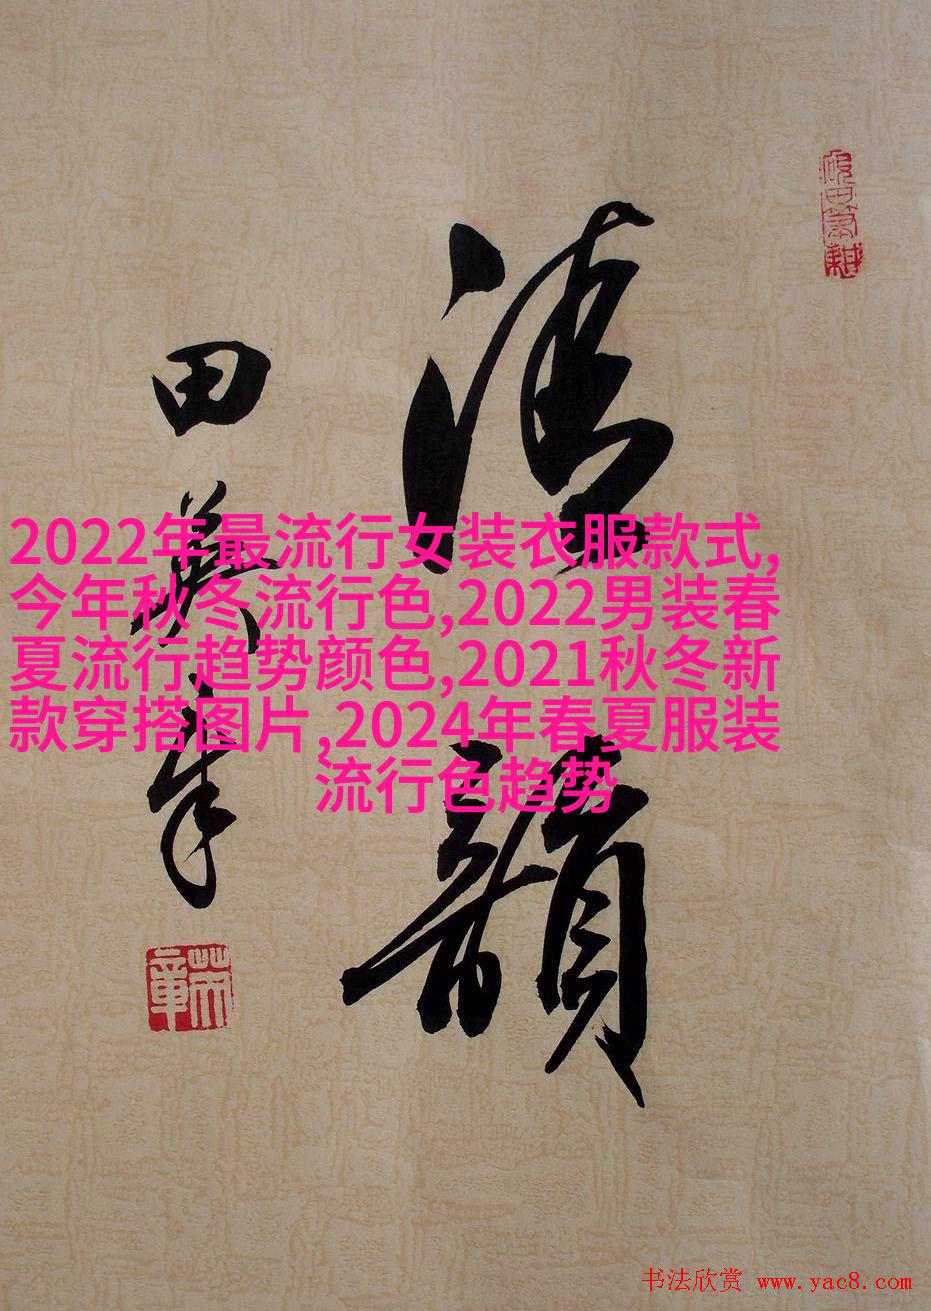 清韻
田英章
2022年最流行女装衣服款式,
今年秋冬流行色,2022男装春
夏流行趋势颜色,2021秋冬新
款穿搭图片,2024年春夏服装
流行色趋势
书法欣赏 www.yac8.com